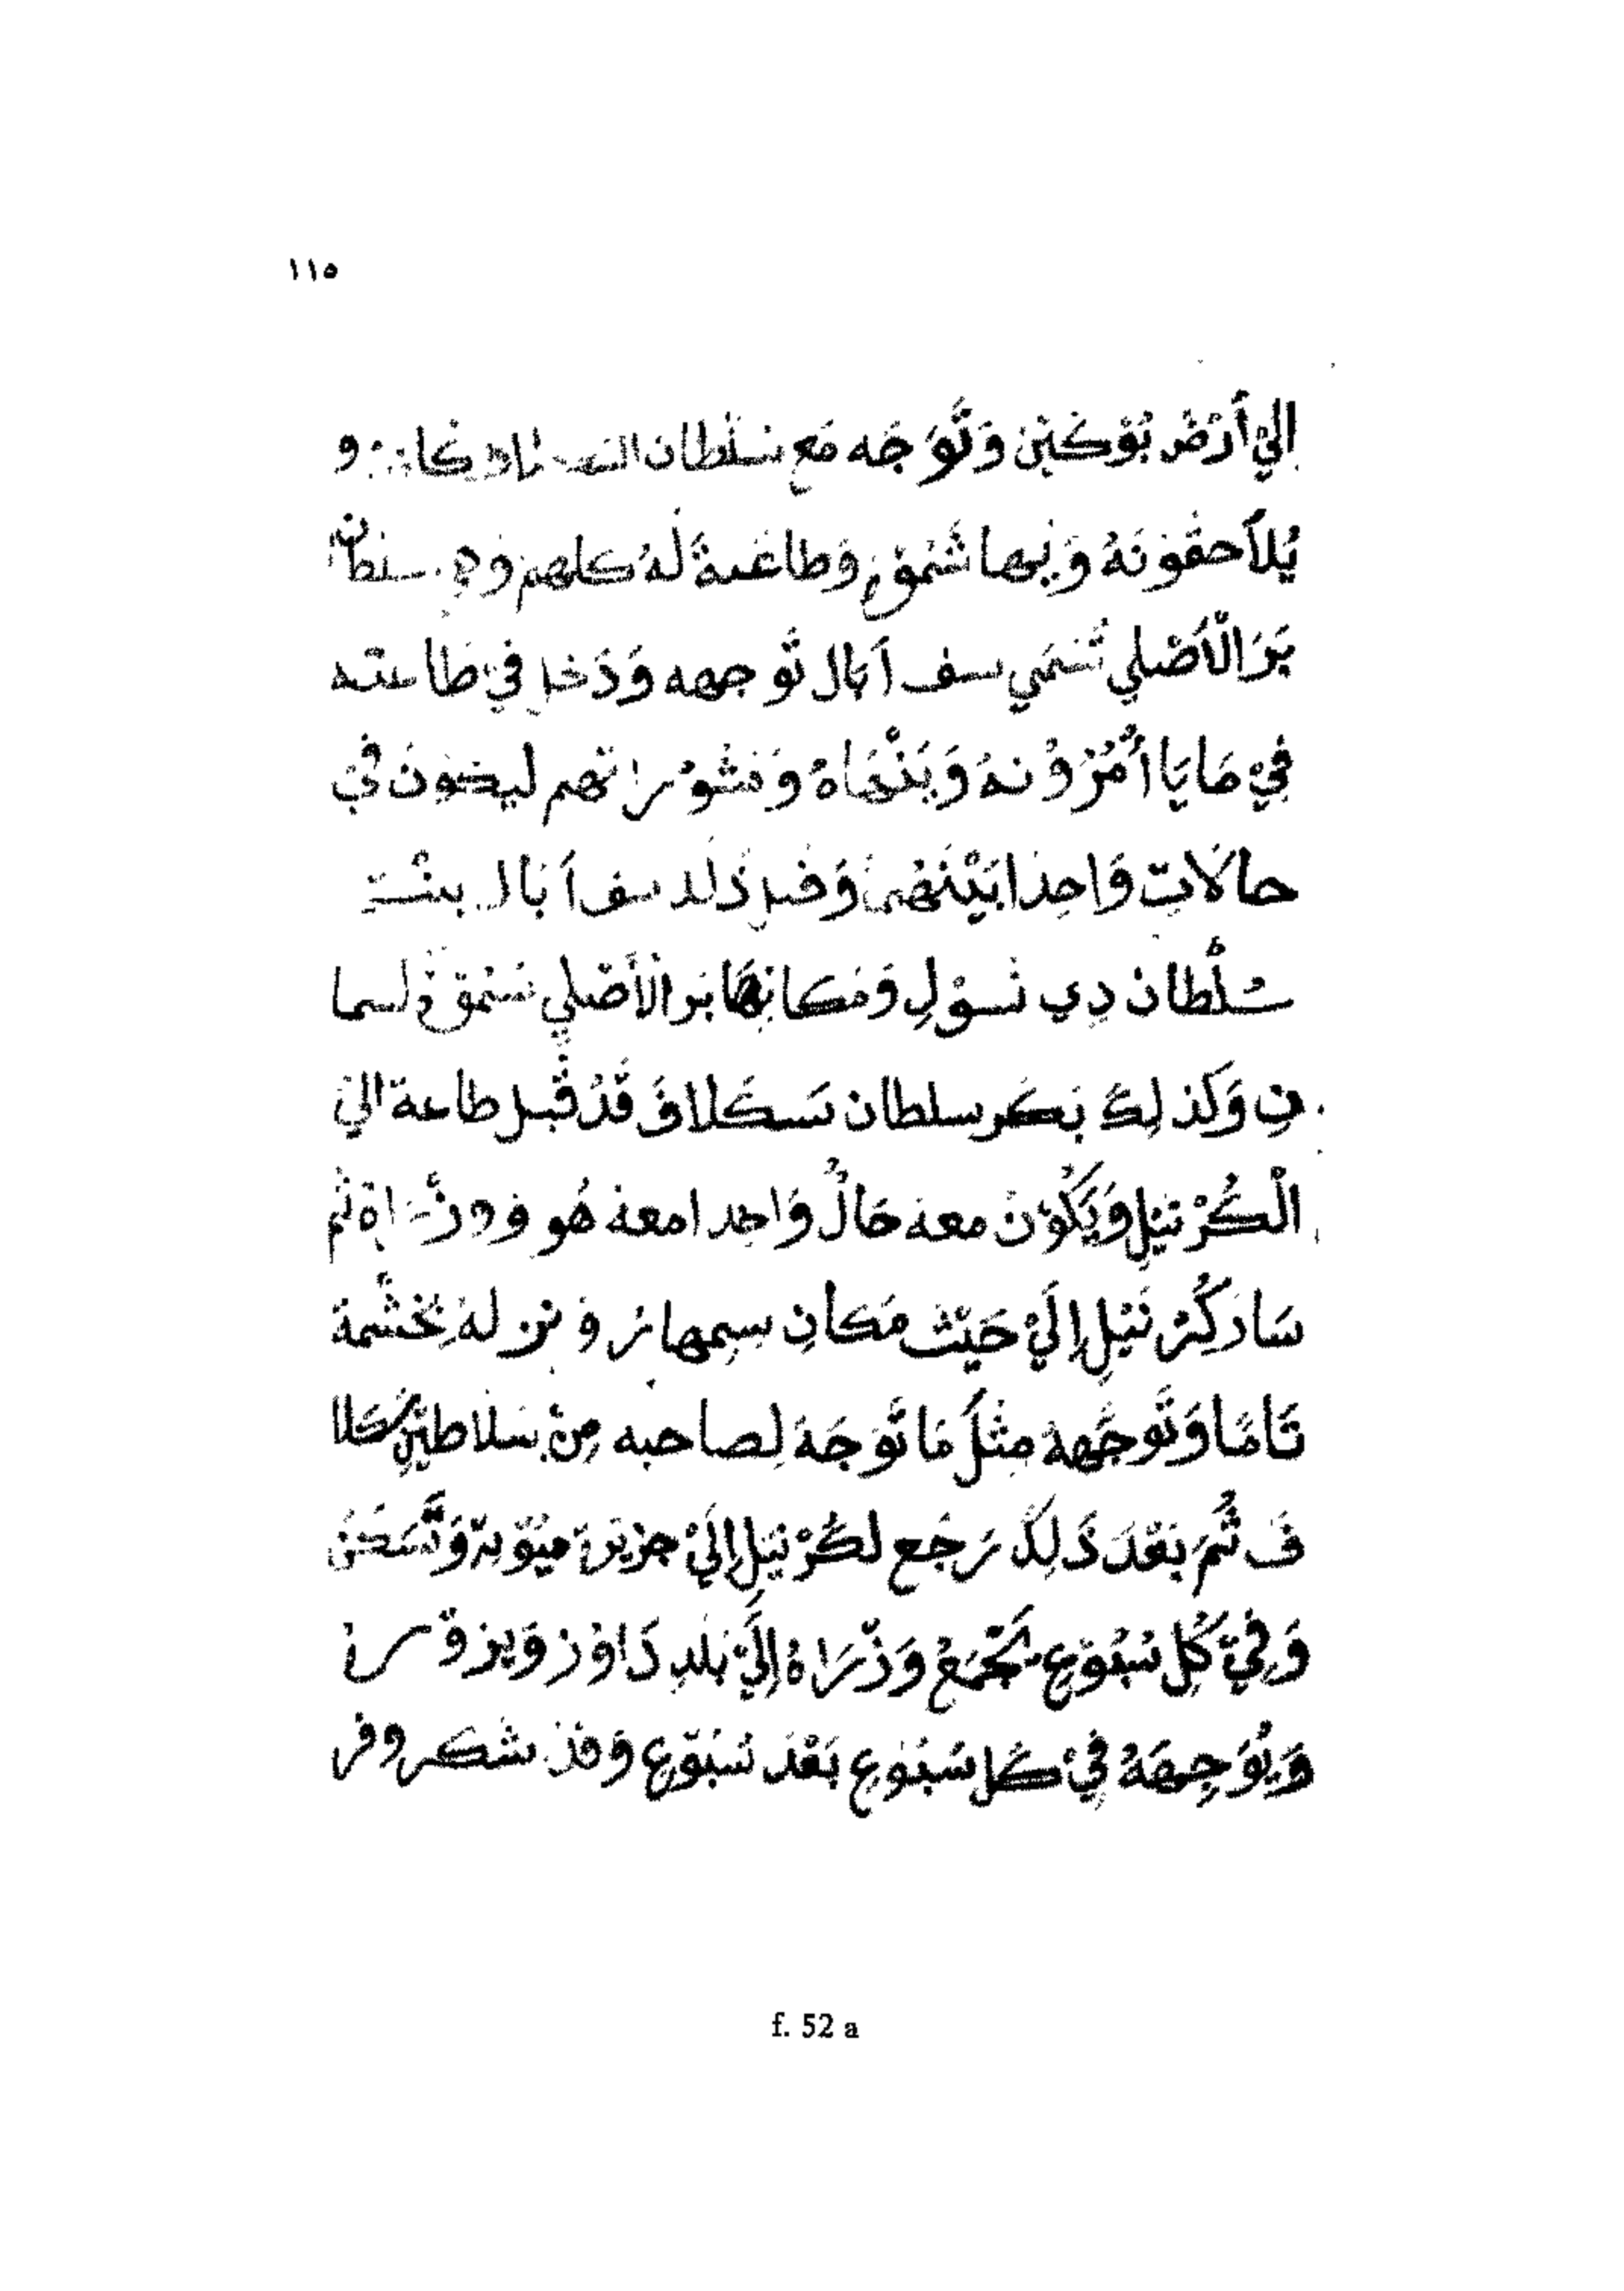 ١١٥
إِلَيْ أَرْضْ بُوْكَبْنِ وَتَّوَجَه مَع سَلْطَان و
يُلَآحِقُوْنَهُ وَبِهَا شَمُوْ وَطَاعَةً لَهُ كلهم سلطان
بَرَالْأَصْلِي تُسَمَي سف آبَال تَوجهه وَدَخل فِيْ طَاعته
فِيْ مَايَا أُمُرُوْنَهُ وَيَنْهَاهُ وَمَشُوْرَاتهم ليكُوْنَ فِيْ
حالَاتِ وَاحِدَا بَيْنَهُمَا وَقبل ذَلك سف آبَال بنْت
سُلْطَان دِي نَسوْلِ وَمَكانِهَا بَرالْأَصْلِي
نِ وَكَذلِكَ بَكَر سلطان سَكَلَافَ قَدْ قَبل طاعة الي
الْكُرْنَيْلِ وَيَكُوْنْ معه حَالُ وَاحِدا معهُ هُو وَوزَرَاة ثم
سَارَ كُرْنَيْلِ إِلَيْ حَيْثْ مَكانِ سِمهارُ وَنزلهُ بِحَشْمَة
تَامًا وَتَوجَّهه مِثْلَ مَا تَّوَجَهَ لِصاحبه مِنْ سَلاطيْنِ كَلا
فَ ثُمَ بَعْدَ ذَلِكَ رَجَع لكُرْنَيْلِ إِلَيْ جزيْرة مَيُوْتة وَتَّسَكَنَ
وَفِيْ كُلِ سُبُوْعِ يَجْمَعْ وَزَرَاهُ إِلَيْ بَلدِ دَاوْز وَيزوْرنا
وَيُوَجِهَهُ فِيْ كَل سُبُوْعِ بَعْدَ سُبُوْعِ وَقَدْ شَكروفر
f. 52 a